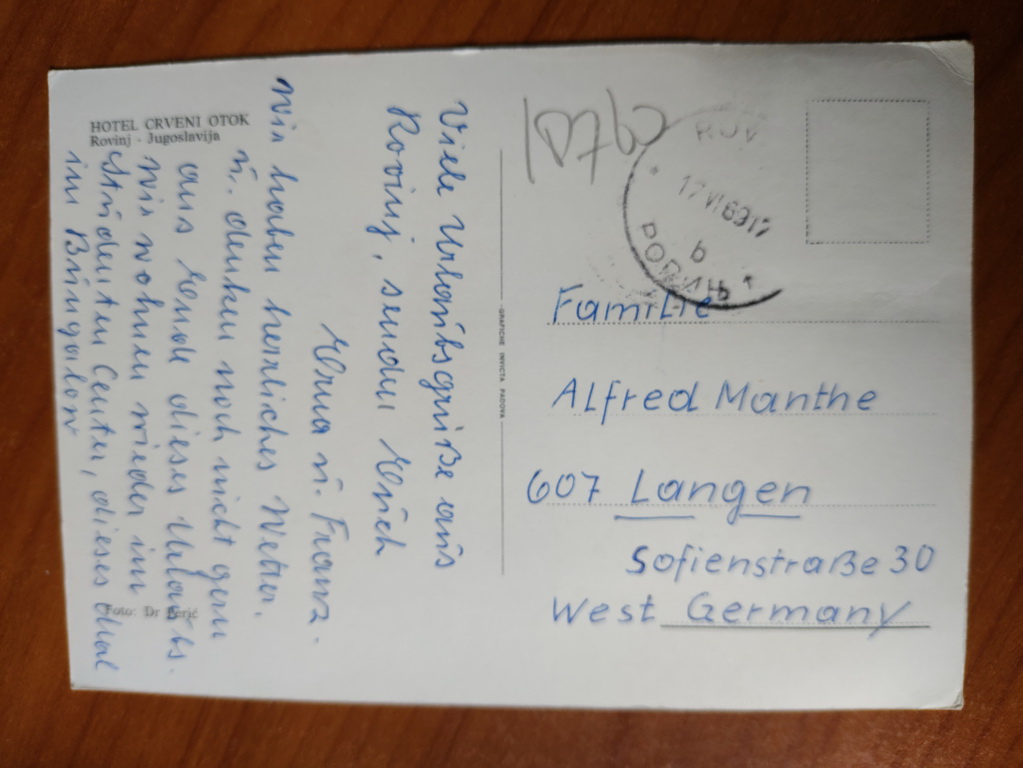 HOTEL CRVENI OTOK
Rovinj - Jugoslavija
Viele Urlaubsgrüße aus
Rovinj, senden Euch
Erna u. Franz.
Wir haben herrliches Wetter,
u. denken noch nicht gern
ans Ende dieses Urlaubs.
Wir wohnen wieder im
Studenten Center, dieses Mal
im Bungalow
Foto: Dr Perić
GRAFICHE INVICTA PADOVA
17 VI 69 17
b
РОВИЊ
Familie
Alfred Manthe
607 Langen
Sofienstraße 30
West Germany